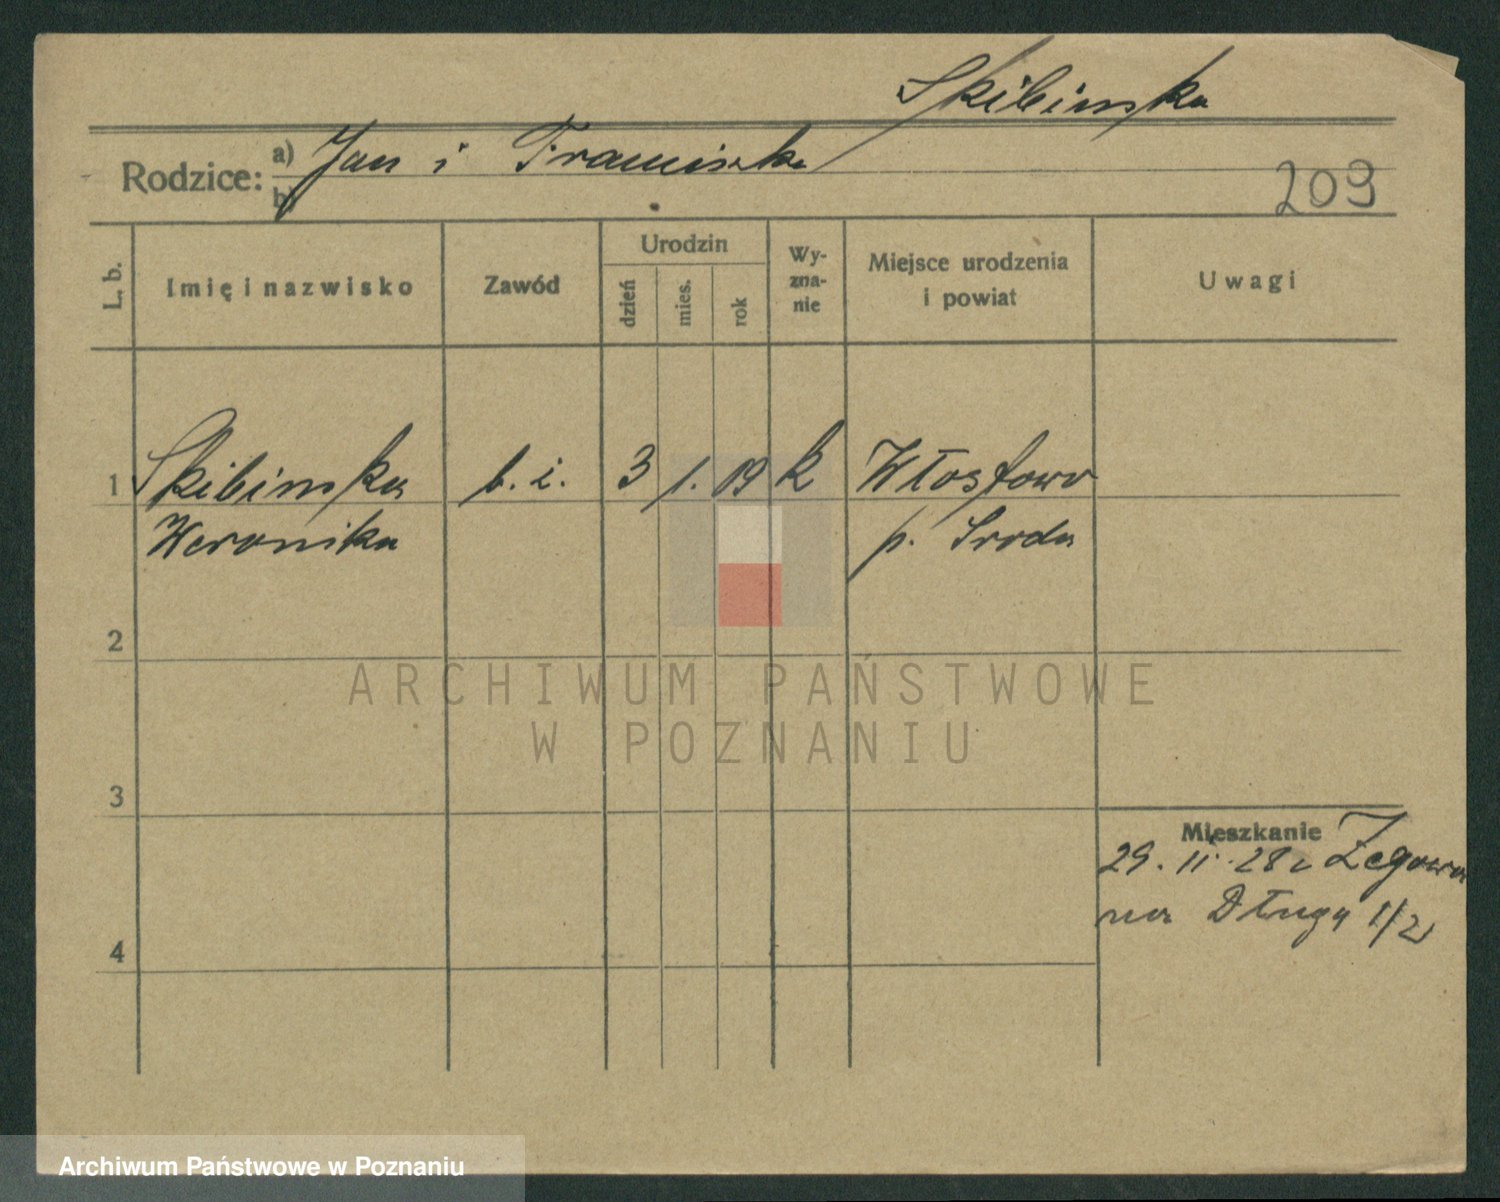 Skibinska
Rodzice: a) Jan i Franciszka
b)
209
L. b.
Imię i nazwisko
Zawód
Urodzin
dzień
mies.
rok
Wy-
zna-
nie
Miejsce urodzenia
i powiat
Uwagi
1 Skibinska b. i. 3 1. 19 k Włostowo
Weronika p. Sroda
2
ARCHIWUM PAŃSTWOWE
W POZNANIU
3
Mieszkanie
29. II. 28 r Zegowo
na Długą 1/2
4
Archiwum Państwowe w Poznaniu